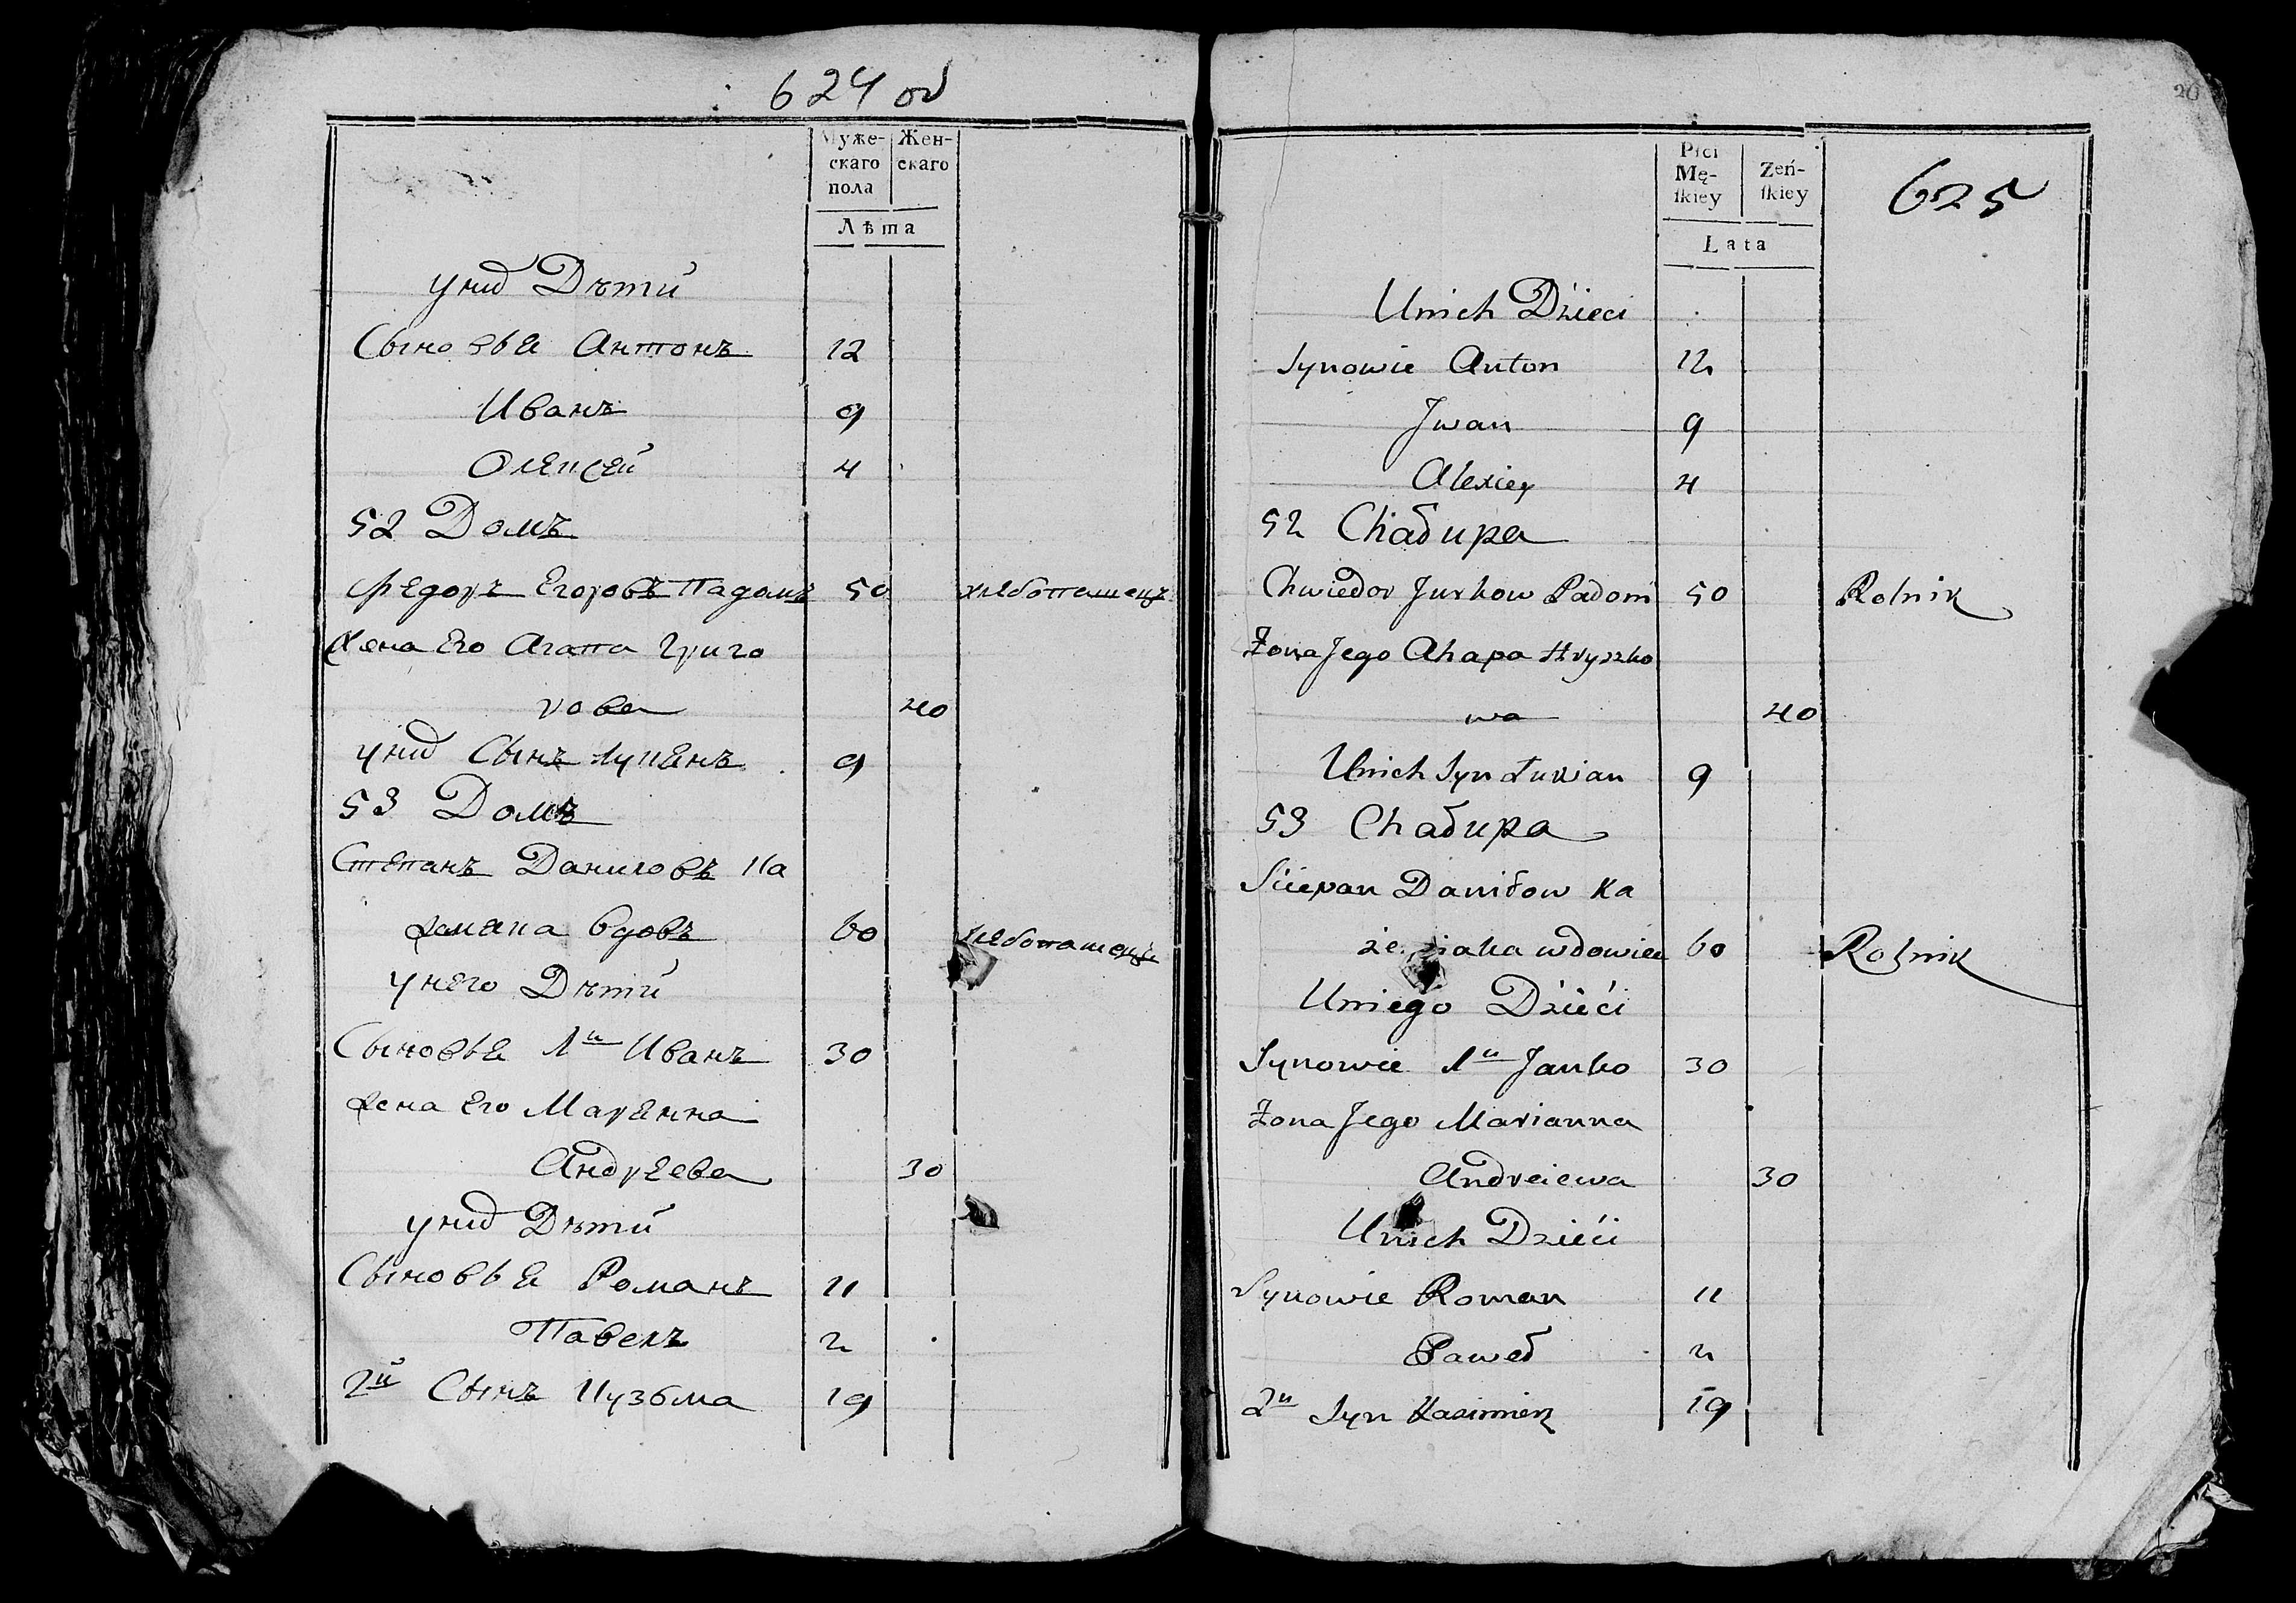 624 об
Муже-
скаго
пола
Жен-
скаго
Лѣта
у нихъ Дѣти
Сыновья Антонъ 12
Иванъ 9
Олексей 4
52 Домъ
Федоръ Егоровъ Падомъ 50 хлебопашецъ
Жена Его Агапа Григо
рова 40
у нихъ Сынъ Лукянъ 9
53 Домъ
Степанъ Даниловъ Ка
жемяка вдовъ 60 хлебопашецъ
у него Дѣти
Сыновья 1й Иванъ 30
Жена Его Марянна
Андреева 30
у нихъ Дѣти
Сыновья Романъ 11
Павелъ 2
2й Сынъ Кузьма 19
20
Płci
Mę-
ſkiey
Żeń-
ſkiey
Lata
625
Unich Dzieci
Synowie Anton 12
Jwan 9
Alexiey 4
52 Chałupa
Chwiedor Jurkow Padom 50 Rolnik
Żona Jego Ahapa Hryszko
wa 40
Unich Syn Łukian 9
53 Chałupa
Sciepan Daniłow Ka
wdowiec 60 Rolnik
Uniego Dzieci
Synowie 1й Janko 30
Żona Jego Marianna
Andreiewa 30
Unich Dzieci
Synowie Roman 11
Paweł 2
2й Syn Kazimierz 19